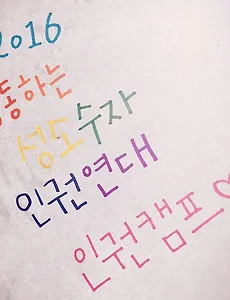 2016
동하는
성도수자
인권연대
인권캠프♡